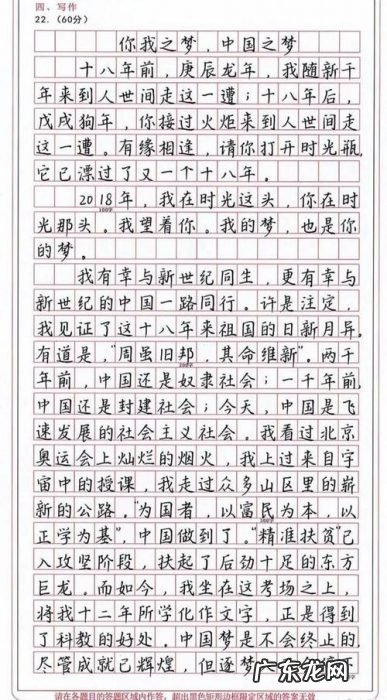 四、写作
22.（60分）
你我之梦，中国之梦
十八年前，庚辰龙年，我随新千
年来到人世间走这一遭；十八年后，
戊戌狗年，你接过火炬来到人世间走
这一遭。有缘相逢，请你打开时光瓶，
它已漂过了又一个十八年。
2018年，我在时光这头，你在时
100字
光那头。我望着你。我的梦，也是你
的梦。
我有幸与新世纪同生，更有幸与
新世纪的中国一路同行。许是注定，
我见证了这十八年来祖国的日新月异。
有道是，“周虽旧邦，其命维新”。两千
200字
年前，中国还是奴隶社会；一千年前，
中国还是封建社会；今天，中国是飞
速发展的社会主义社会。我看过北京
奥运会上灿烂的烟火，我上过来自宇
宙中的授课，我走过众多山区里的崭
新的公路。“为国者，以富民为本，以
300字
正学为基”，中国做到了。“精准扶贫”已
入攻坚阶段，扶起了后劲十足的东方
巨龙。而如今，我坐在这考场之上，
将我十二年所学化作文字，正是得到
了科教的好处。中国梦是不会终止的，
尽管成就已辉煌，但逐梦
请在各题目的答题区域内作答，超出黑色矩形边框限定区域的答案无效
广东龙网